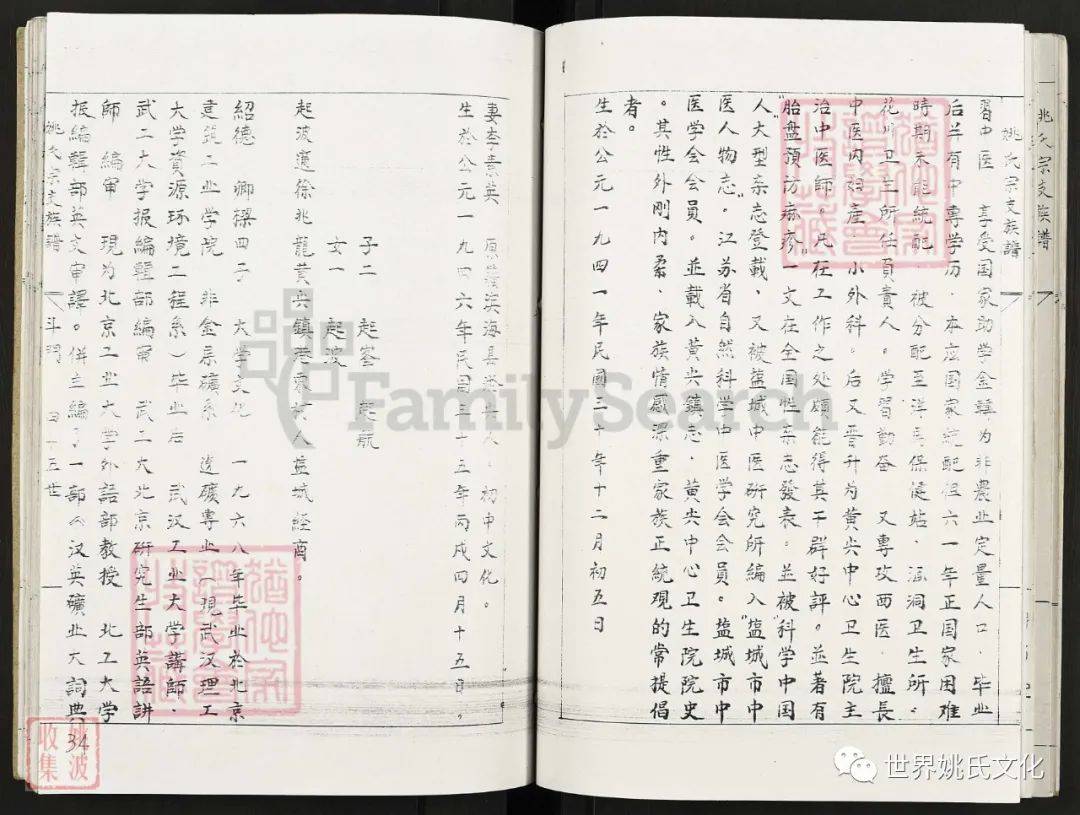 姚氏宗支族譜
姚氏宗支族譜
習中医 享受国家助学金轉为非農业定量人口．毕业
后并有中專学历．本应国家統配但六一年正国家困难
時期未能統配．被分配至洋馬保健站．洄洞卫生所．
花川卫生所任負責人．学習勤奋 又專攻西医．擅長
中医内妇產．小外科．后又晋升为黄尖中心卫生院主
治中医師。凡在工作之处頗能得其干群好評。並著有
"胎盘預访痲疹"一文在全国性杂志發表．並被"科学中国
人"大型杂志登載．又被塩城中医研究所編入"塩城市中
医人物志。"江苏省自然科学中医学会会員。塩城市中
医学会会員。並載入黄尖鎮志．黄尖中心卫生院院史
。其性外剛内柔．家族情感深重家族正統观的常提倡
者。
生於公元一九四一年民國三十年十二月初五日
妻李素英 原籍滨海县 人．初中文化。
生於公元一九四六年民国三十五年丙戌四月十五日。
子二 起峯 起航
女一 起波
起波適徐兆龍黄尖鎮 東村人 塩城經商。
紹德 卿樑四子 大学文化 一九六八年毕业於北京
建筑工业学院 非金屬礦系 选礦專业（現武汉理工
大学資源环境工程系）毕业后 武汉工业大学講師．
武工大学报編輯部編审 武工大北京研究生部英語讲
師 編审 現为北京工业大学外語部教授 北工大学
报編輯部英文审譯。併主編了一部《汉英礦业大詞典
姚氏宗支族譜 斗門 四十五世
34
姚波
收集
FamilySearch
世界姚氏文化